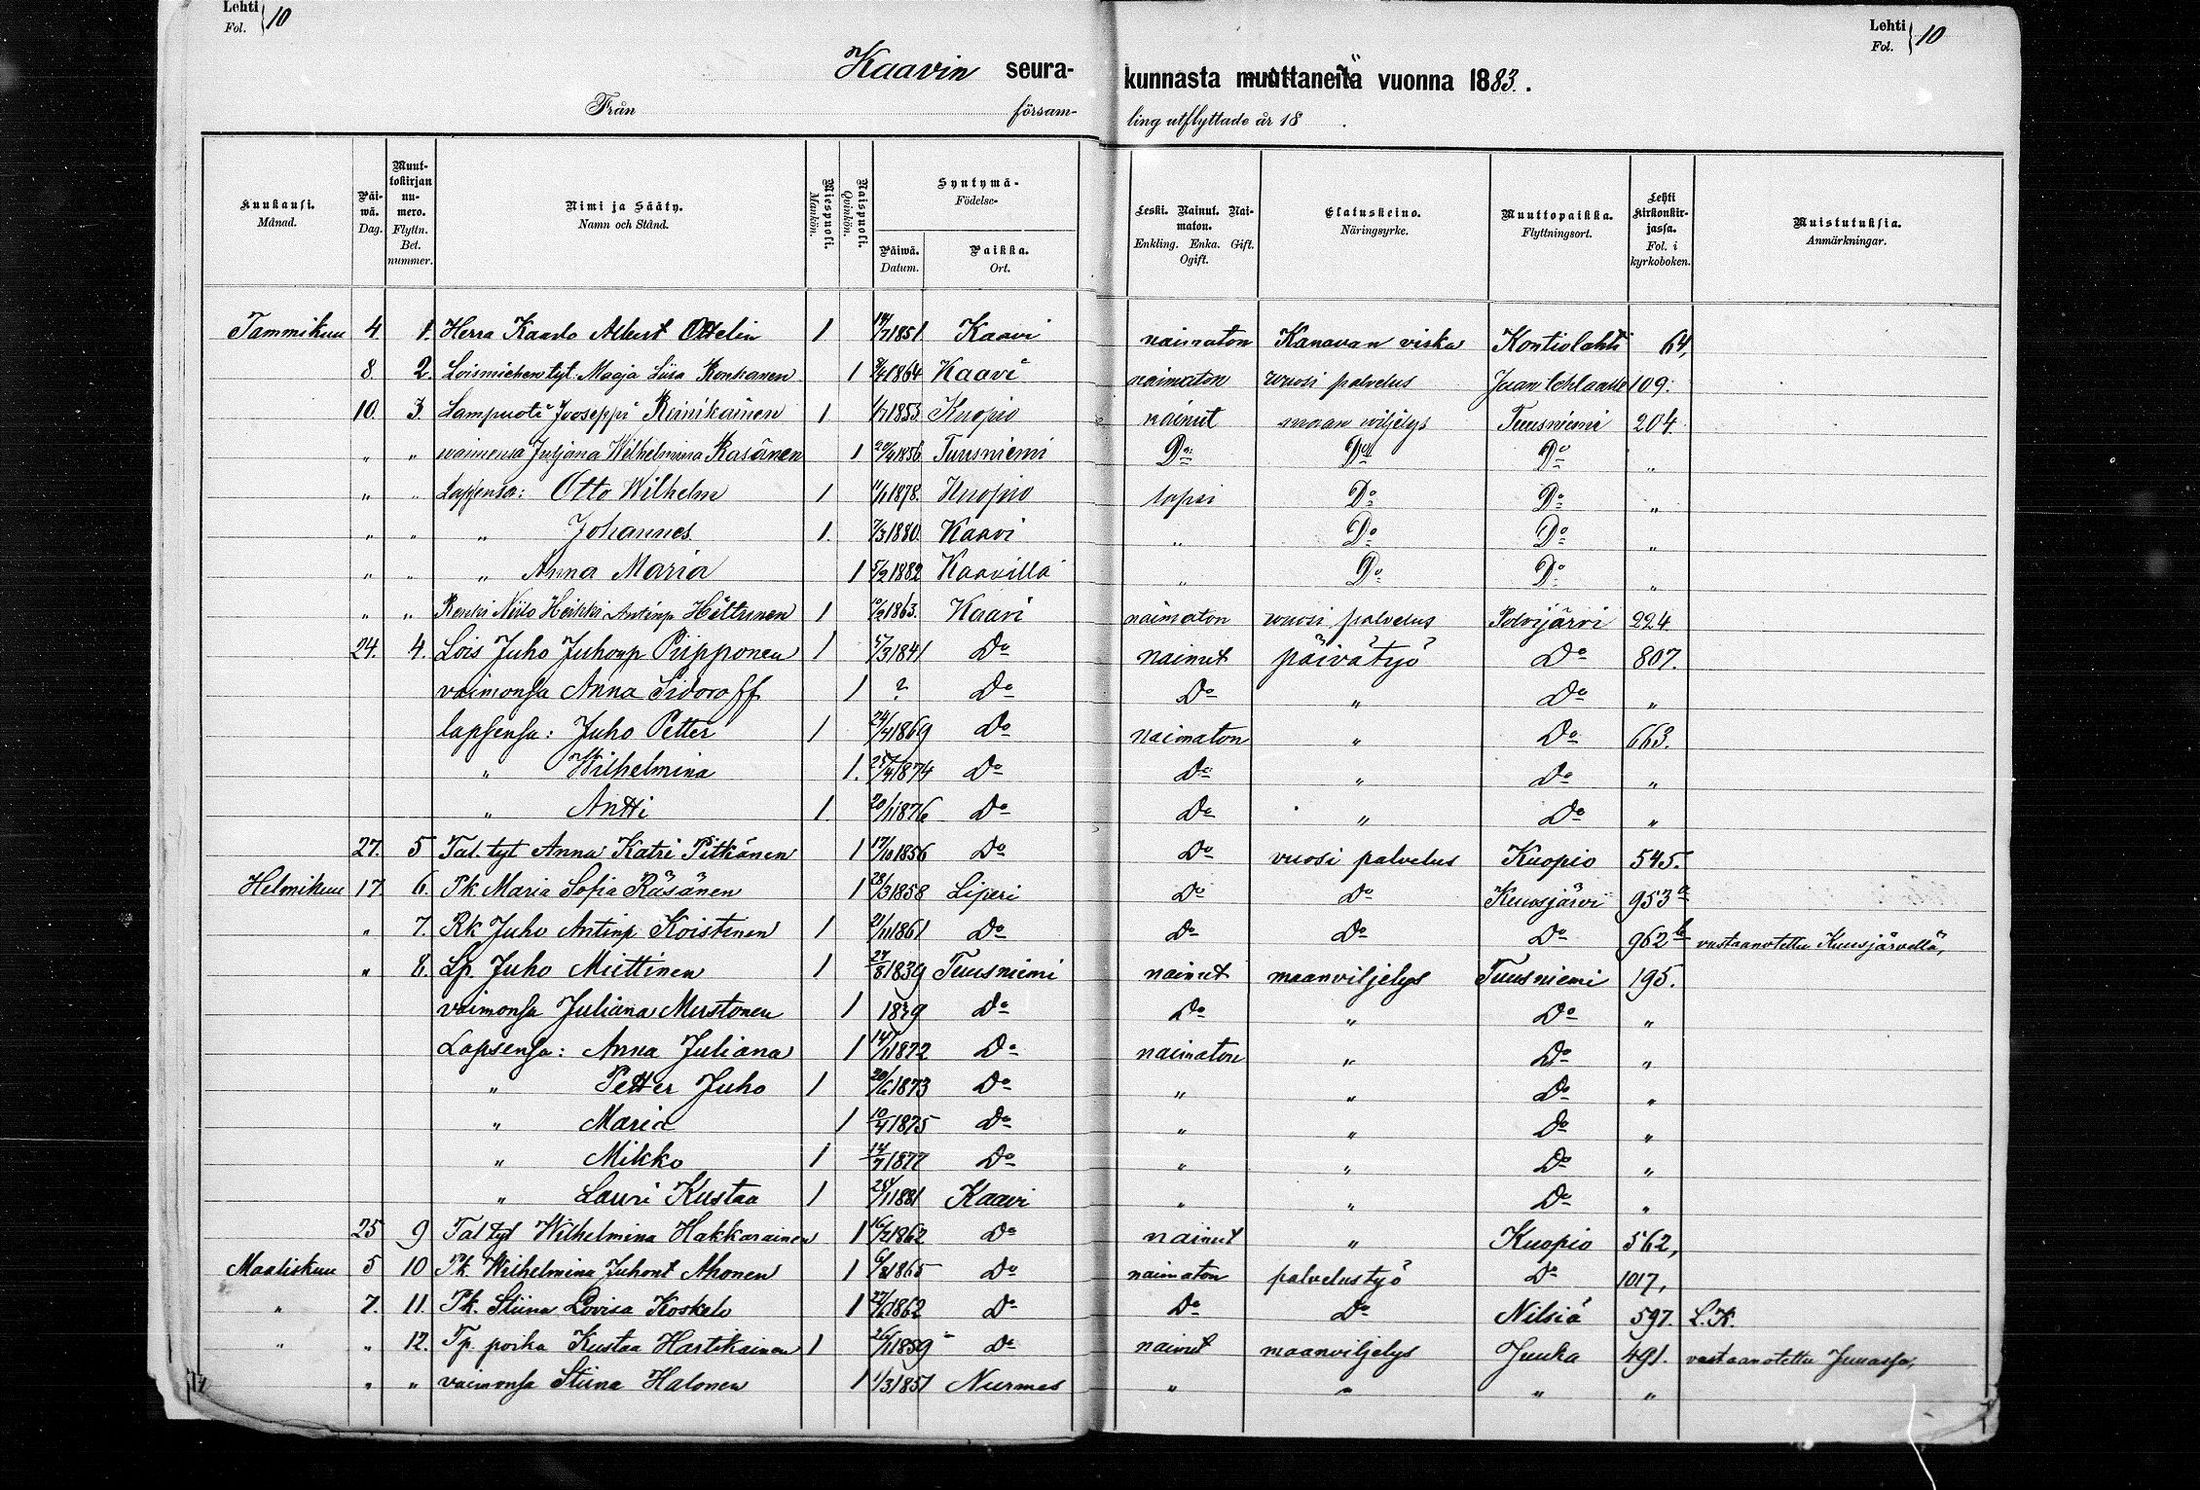 Lehti Fol. } 10
Lehti Fol. } 10
Kaavin seurakunnasta muuttaneitä vuonna 1883.
Från församling utflyttade år 18 .
Kuukausi. Månad. | Päiwä. Dag. | Muuttokirjan numero. Flyttn. Bet. nummer. | Nimi ja Sääty. Namn och Stånd. | Miespuoli. Mankön. | Naispuoli. Qvinkön. | Syntymä- Födelse- Päiwä. Datum. | Paikka. Ort. | Leski. Nainut. Naimaton. Enkling. Enka. Gift. Ogift. | Elatuskeino. Näringsyrke. | Muuttopaikka. Flyttningsort. | Lehti kirkonkirjassa. Fol. i kyrkoboken. | Muistutuksia. Anmärkningar.
Tammikuu 4. 1. Herra Kaarlo Albert Ottelin 1 /7 1851 Kaavi naimaton Kanavan Kontiolahti 64,
8. 2. Loismiehen tyt. Maaja Liisa Konkanen 1 1864 Kaavi naimaton vuosi palvelus 109.
10. 3. Lampuoti Jooseppi Reinikainen 1 1853 Kuopio nainut maan wiljelys Tuusniemi 204.
" " waimonsa Juljana Wilhelmina Räsänen 1 1856 Tuusniemi Do Do Do "
" " Lapsensa: Otto Wilhelm 1 1878. Kuopio lapsi Do Do "
" " " Johannes. 1. 7/3 1880. Kaavi " Do Do "
" " " Anna Maria 1 5/2 1882 Kaavilla " Do Do "
" " Renki Niilo Heikki Antinp Hiltunen 1 10/2 1863. Kaavi naimaton vuosi palvelus Polvijärvi 224.
24. 4. Lois Juho Juhonp Piipponen 1 /3 1841 Do nainut päivätyö Do 807.
vaimonsa Anna Sidoroff 1 ? Do Do " Do "
lapsensa: Juho Petter 1 24/4 1869 Do naimaton " Do 663.
" Wilhelmina 1. 25/4 1874 Do Do " Do "
" Antti 1. 20/1 1876 Do Do " Do "
27. 5 Tal. tyt Anna Katri Pitkänen 1 17/10 1856 Do Do vuosi palvelus Kuopio 545.
Helmikuu 17. 6. Pk Maria Sofia Räsänen 1 28/3 1858 Liperi Do Do Kuusjärvi 953 a
" 7. Rk Juho Antinp Koistinen 1 21/11 1861 Do Do Do Do 962 b vastaanotettu Kuusjärvellä,
" 8. Lp. Juho Miettinen 1 27/8 1839 Tuusniemi nainut maanviljelys Tuusniemi 195.
vaimonsa Juliana Mustonen 1 1839 Do Do " Do "
Lapsensa: Anna Juliana 1 14/11 1872 Do naimaton " Do "
" Petter Juho 1 20/6 1873 Do " " Do "
" Maria 1 10/4 1875 Do " " Do "
" Mikko 1 14/7 1877 Do " " Do "
" Lauri Kustaa 1 /1 1881 Kaavi " " Do "
25 9 Tal tyt Wilhelmina Hakkarainen 1 16/7 1862 Do nainut " Kuopio 562,
Maaliskuu 5 10 Pk. Wilhelmina Juhont Ahonen 1 1865 Do naimaton palvelustyö Do 1017,
" 7. 11. Pk. Stiina Lovisa Koskelo 1 1862 Do Do Do Nilsiä 597. L.K.
" " 12. Tp. poika Kustaa Hartikainen 1 1859 Do nainut maanviljelys Juuka 491. vastaanotettu Juuassa,
" " vaimonsa Stiina Halonen 1 1/3 1857 Nurmes " " " "